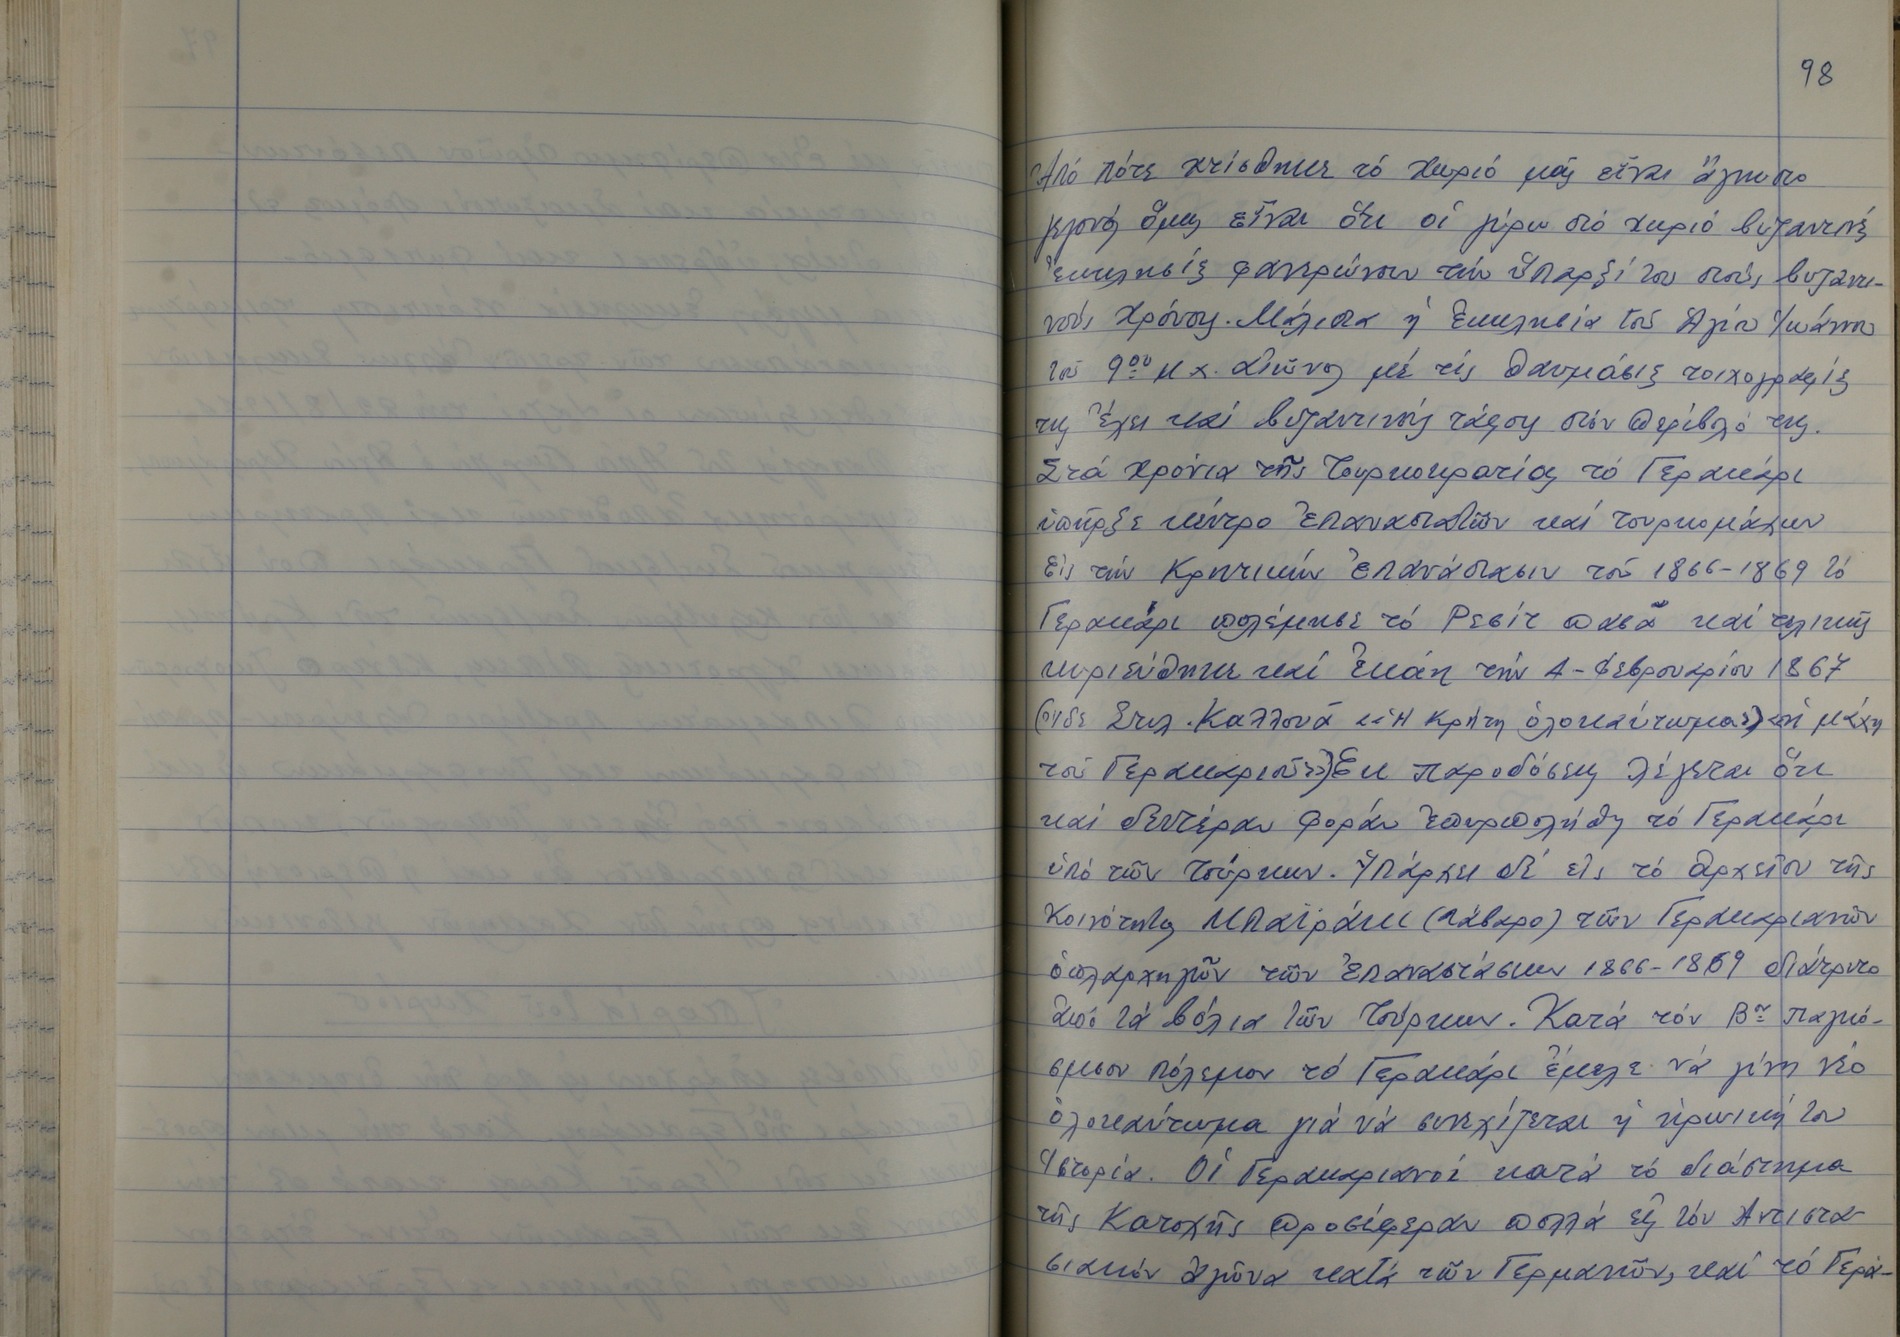 98
Ἀπό πότε χτίσθηκε τό χωριό μας εἶναι ἄγνωστο
γεγονός ὅμως εἶναι ὅτι οἱ γύρω στό χωριό βυζαντινές
ἐκκλησίες φανερώνουν τήν ὕπαρξί του στούς βυζαντι-
νούς χρόνους. Μάλιστα ἡ ἐκκλησία τοῦ Ἁγίου Ἰωάννου
τοῦ 9ου μ.χ. αἰῶνος μέ τίς θαυμάσιες τοιχογραφίες
της ἔχει καί βυζαντινούς τάφους στόν περίβολό της.
Στά χρόνια τῆς Τουρκοκρατίας τό Γερακάρι
ὑπῆρξε κέντρο ἐπαναστατῶν καί τουρκομάχων
Εἰς τήν Κρητικήν ἐπανάστασιν τοῦ 1866-1869 τό
Γερακάρι πολέμησε τό Ρεσίτ πασᾶ καί τελικῶς
κυριεύθηκε καί ἐκάη τήν 4-Φεβρουαρίου 1867
(ἴδε Στυλ. Καλλονᾶ «Ἡ Κρήτη ὁλοκαύτωμα») «ἡ μάχη
τοῦ Γερακαριοῦ») Ἐκ παραδόσεως λέγεται ὅτι
καί δευτέραν φοράν ἐπυρπολήθη τό Γερακάρι
ὑπό τῶν Τούρκων. Ὑπάρχει δέ εἰς τό ἀρχεῖον τῆς
Κοινότητος Μπαϊράκι (λάβαρο) τῶν Γερακαριανῶν
ὁπλαρχηγῶν τῶν ἐπαναστάσεων 1866-1869 διάτρητο
ἀπό τά βόλια τῶν Τούρκων. Κατά τόν Βον παγκό-
σμιον πόλεμον τό Γερακάρι ἔμελε νά γίνη νέο
ὁλοκαύτωμα γιά νά συνεχίζεται ἡ ἡρωική του
Ἱστορία. Οἱ Γερακαριανοί κατά τό διάστημα
τῆς Κατοχῆς προσέφεραν πολλά εἰς τόν Ἀντιστα-
σιακόν ἀγῶνα κατά τῶν Γερμανῶν, καί τό Γερα-